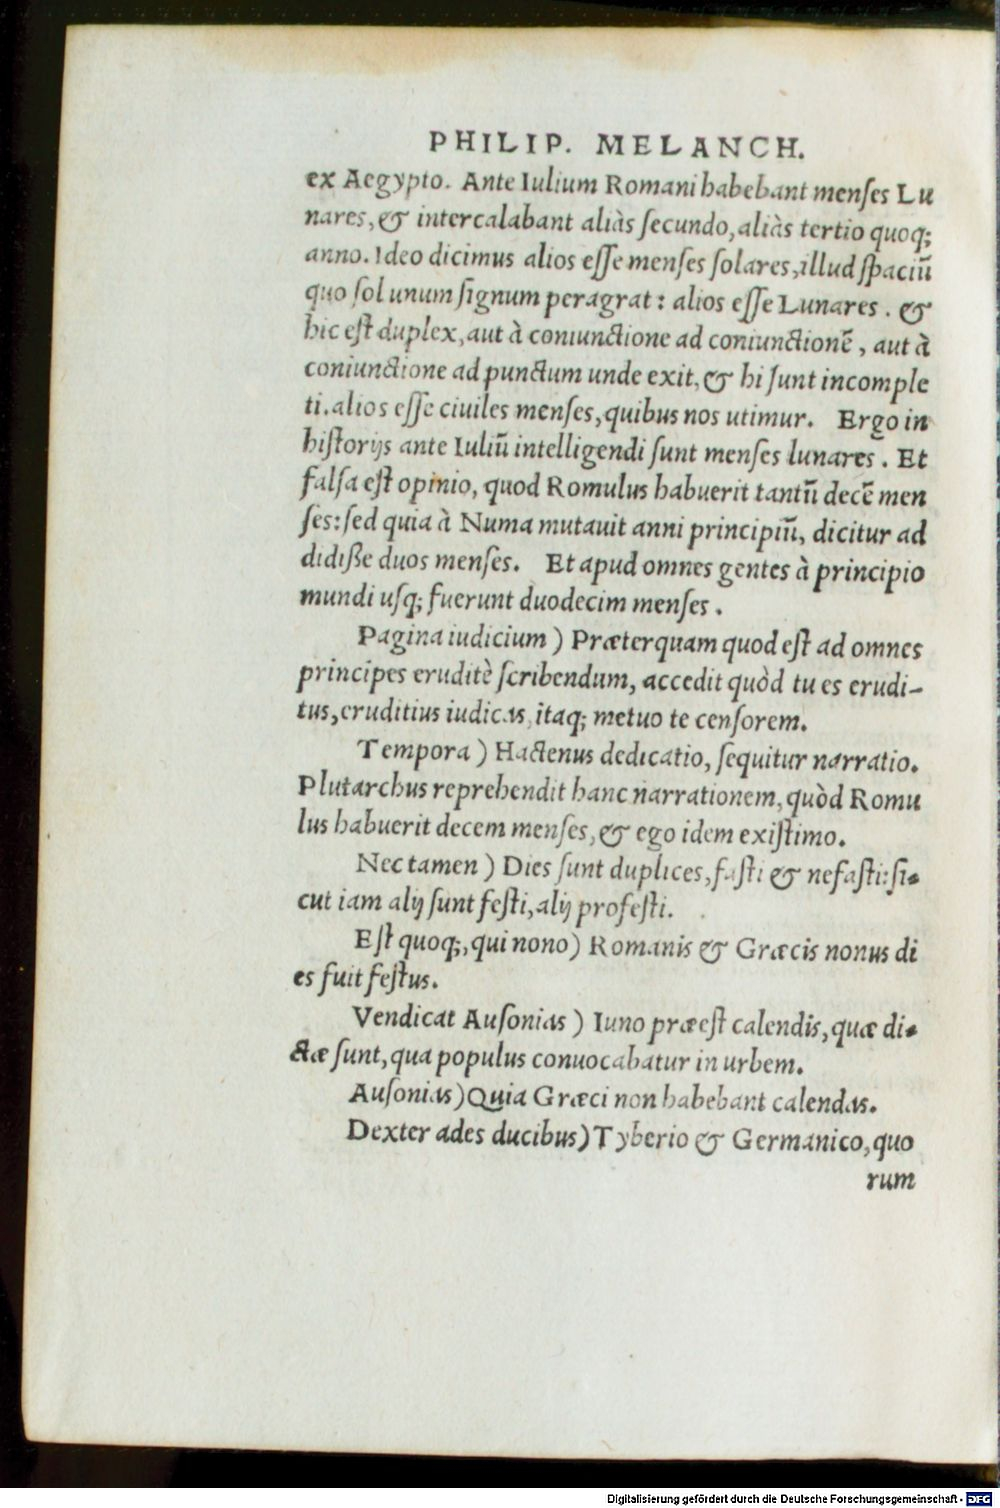 PHILIP. MELANCH.
ex Aegypto. Ante Iulium Romani habebant menses Lu
nares, & intercalabant aliàs secundo, aliàs tertio quoq;
anno. Ideo dicimus alios esse menses solares, illud spaciũ
quo sol unum signum peragrat: alios esse Lunares. &
hic est duplex, aut à coniunctione ad coniunctionẽ, aut à
coniunctione ad punctum unde exit, & hi sunt incomple
ti. alios esse ciuiles menses, quibus nos utimur. Ergo in
historijs ante Iuliũ intelligendi sunt menses lunares. Et
falsa est opinio, quod Romulus habuerit tantũ decẽ men
ses: sed quia à Numa mutauit anni principiũ, dicitur ad
didiße duos menses. Et apud omnes gentes à principio
mundi usq; fuerunt duodecim menses.
Pagina iudicium) Præterquam quod est ad omnes
principes eruditè scribendum, accedit quòd tu es erudi-
tus, eruditius iudicas, itaq; metuo te censorem.
Tempora) Hactenus dedicatio, sequitur narratio.
Plutarchus reprehendit hanc narrationem, quòd Romu
lus habuerit decem menses, & ego idem existimo.
Nec tamen) Dies sunt duplices, fasti & nefasti: si-
cut iam alij sunt festi, alij profesti.
Est quoq;, qui nono) Romanis & Græcis nonus di
es fuit festus.
Vendicat Ausonias) Iuno præest calendis, quæ di-
ctæ sunt, qua populus conuocabatur in urbem.
Ausonias) Quia Græci non habebant calendas.
Dexter ades ducibus) Tyberio & Germanico, quo
rum
Digitalisierung gefördert durch die Deutsche Forschungsgemeinschaft - DFG